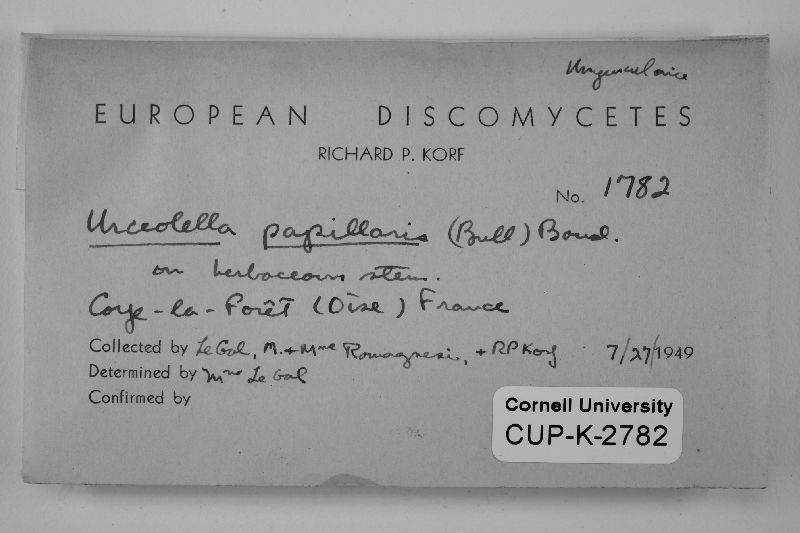 Unguiculariae
EUROPEAN DISCOMYCETES
RICHARD P. KORF
No. 1782
Urceolella papillaris (Bull) Boud.
on herbaceous stem.
Coye-la-Forêt (Oise) France
Collected by Le Gal, M. + Mme Romagnesi, + RP Korf 7/27/1949
Determined by Mme Le Gal
Confirmed by
Cornell University
CUP-K-2782